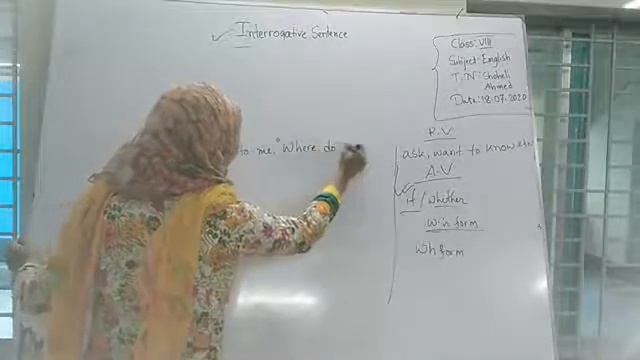 Interrogative Sentence
Class: VIII
Subject: English
T.N: Shoheli
Ahmed
Date: 18.07.2020
to me, "Where do
R.V
ask, want to know etc
A.V
If / whether
W-h form
Wh form